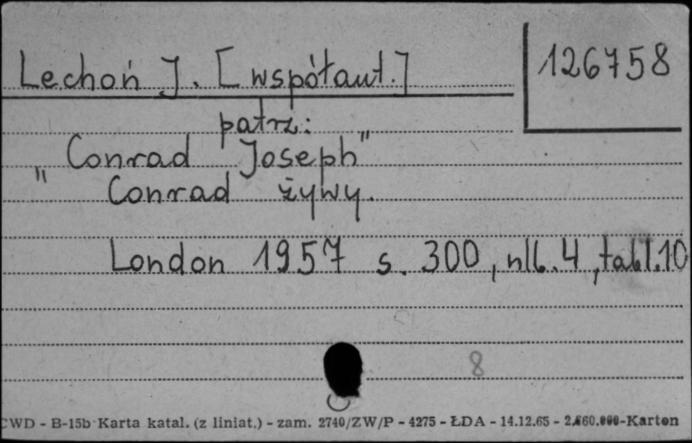 Lechoń J. [współaut.]
126758
patrz:
"Conrad Joseph"
Conrad żywy.
London 1957 s. 300, nlb. 4, tabl. 10
8
CWD - B-15b Karta katal. (z liniat.) - zam. 2740/ZW/P - 4275 - ŁDA - 14.12.65 - -Karton